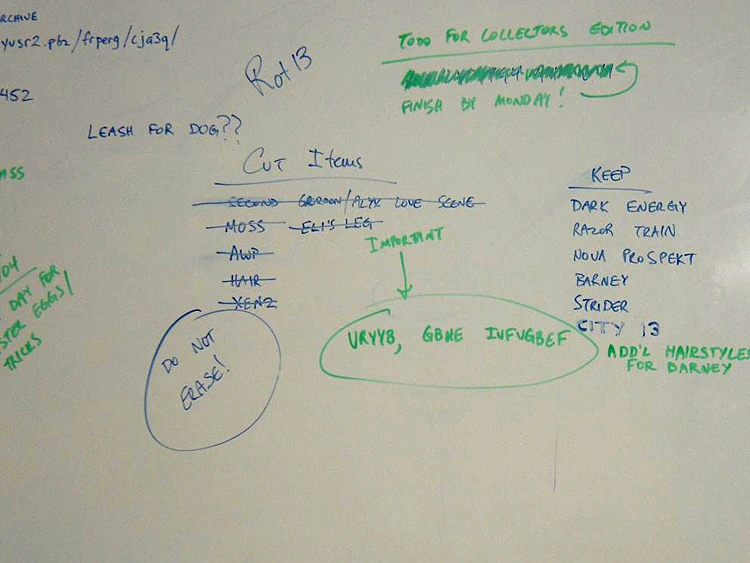 ARCHIVE
yusr2.pbz/frperg/cja3q/
452
Rot13
TODO FOR COLLECTORS EDITION
FINISH BY MONDAY!
LEASH FOR DOG??
Cut Items
SECOND GORDON/ALYX LOVE SCENE
MOSS ELI'S LEG
AWP
HAIR
XENZ
IMPORTANT
KEEP
DARK ENERGY
RAZOR TRAIN
NOVA PROSPEKT
BARNEY
STRIDER
CITY 13
ADD'L HAIRSTYLES
FOR BARNEY
URYYB, GBNE IVFVGBEF
DO NOT
ERASE!
ASS
/04
DAY FOR
STER EGGS/
TRICKS